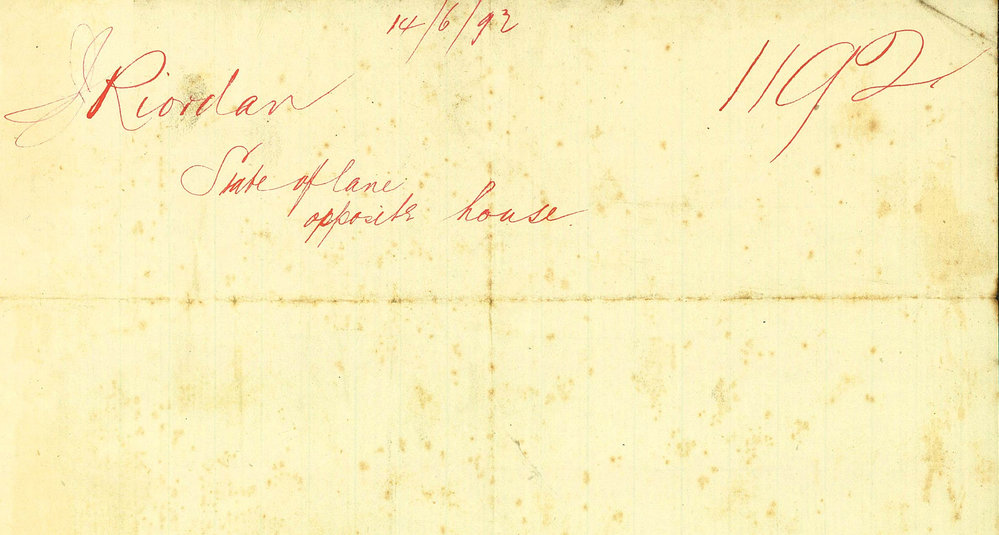 14/6/92
J Riordan
1192
State of lane
opposite house